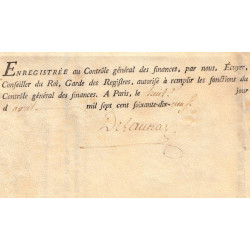 ENREGISTRÉE au Contrôle général des finances, par nous, Écuyer,
Conseiller du Roi, Garde des Registres, autorisé à remplir les fonctions du
Contrôle général des finances. A Paris, le huit jour
d avril mil sept cent soixante-dix-neuf
Delaunay